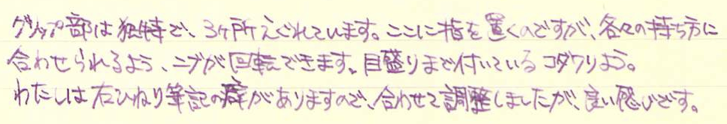 グリップ部は独特で、3ヶ所えぐれています。ここに指を置くのですが、各々の持ち方に
合わせられるよう、ニブが回転できます。目盛りまで付いているコダワリよう。
わたしは左ひねり筆記の癖がありますので、合わせて調整しましたが、良い感じです。